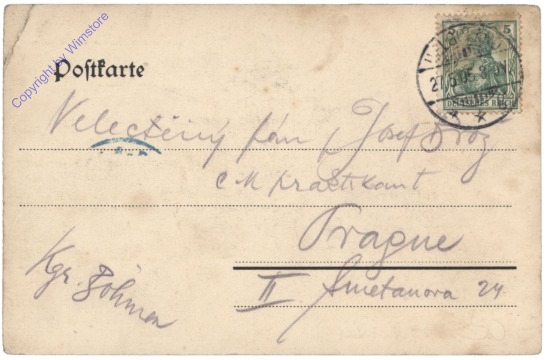 Copyright by Wimstore
Postkarte
5
27.5.05
DEUTSCHES REICH
Velectěný pán Josef Brož
Praktikant
Prague
II Smetanova 24
Kgr. Böhmen